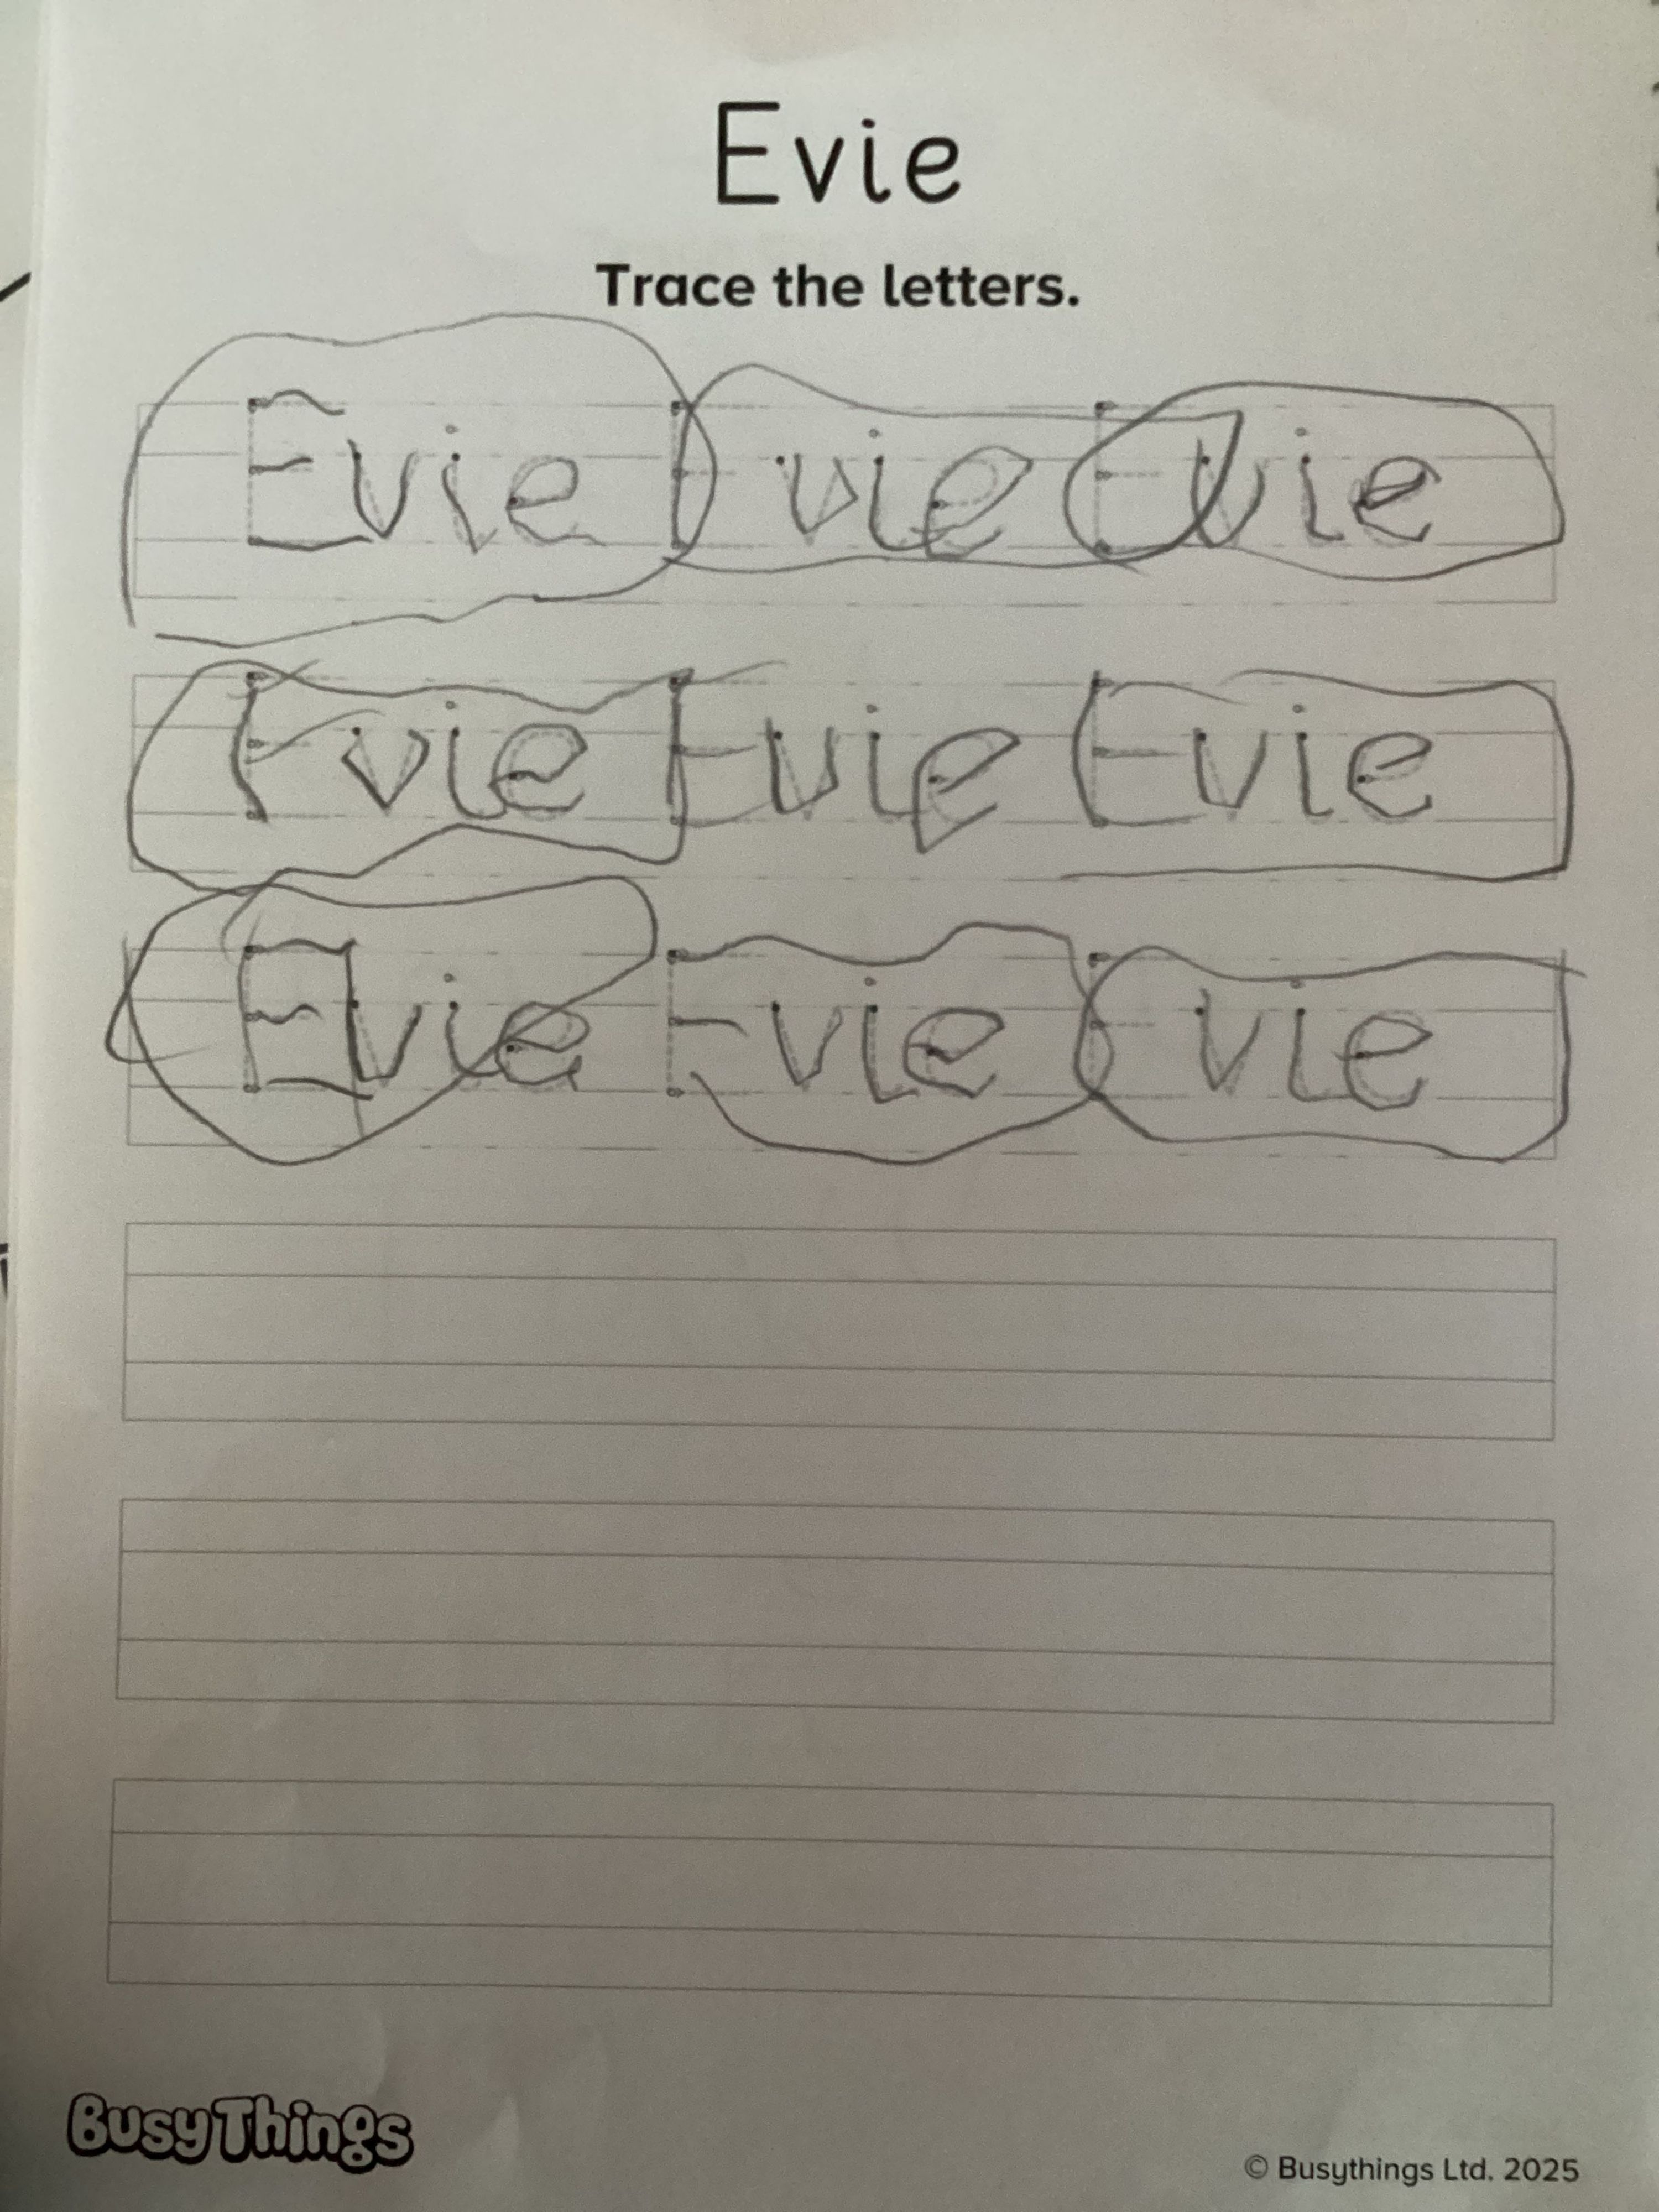 Evie
Trace the letters.
Evie Evie Evie
Evie Evie Evie
Evie Evie Evie
BusyThings
© Busythings Ltd. 2025